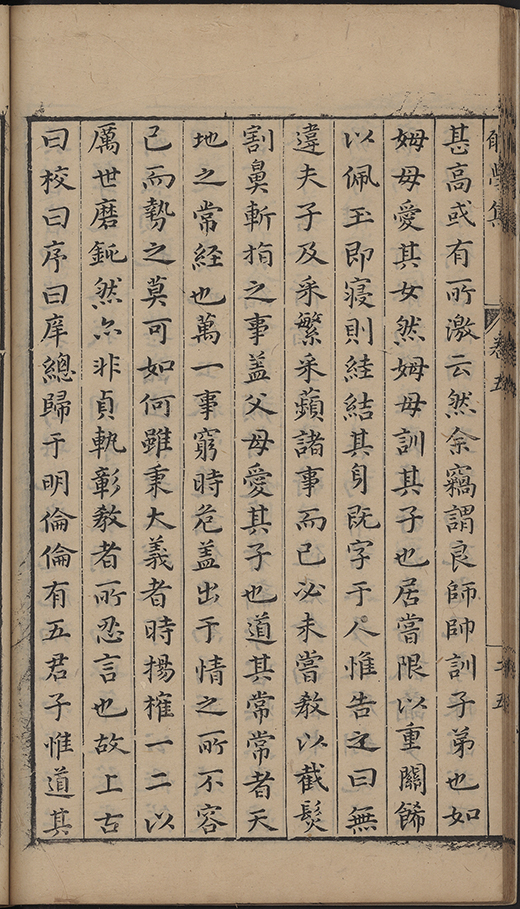 卷五
甚高或有所激云然余竊謂良師帥訓子弟也如
姆母愛其女然姆母訓其子也居嘗限以重關餙
以佩玉即寝則絓結其身既字于人惟告之曰無
違夫子及采繁采蘋諸事而已必未嘗教以截髮
割鼻斬指之事盖父母愛其子也道其常常者天
地之常経也萬一事窮時危盖出于情之所不容
已而勢之莫可如何雖秉大義者時揚榷一二以
厲世磨鈍然尒非貞軌彰教者所忍言也故上古
曰校曰序曰庠總歸于明倫倫有五君子惟道其